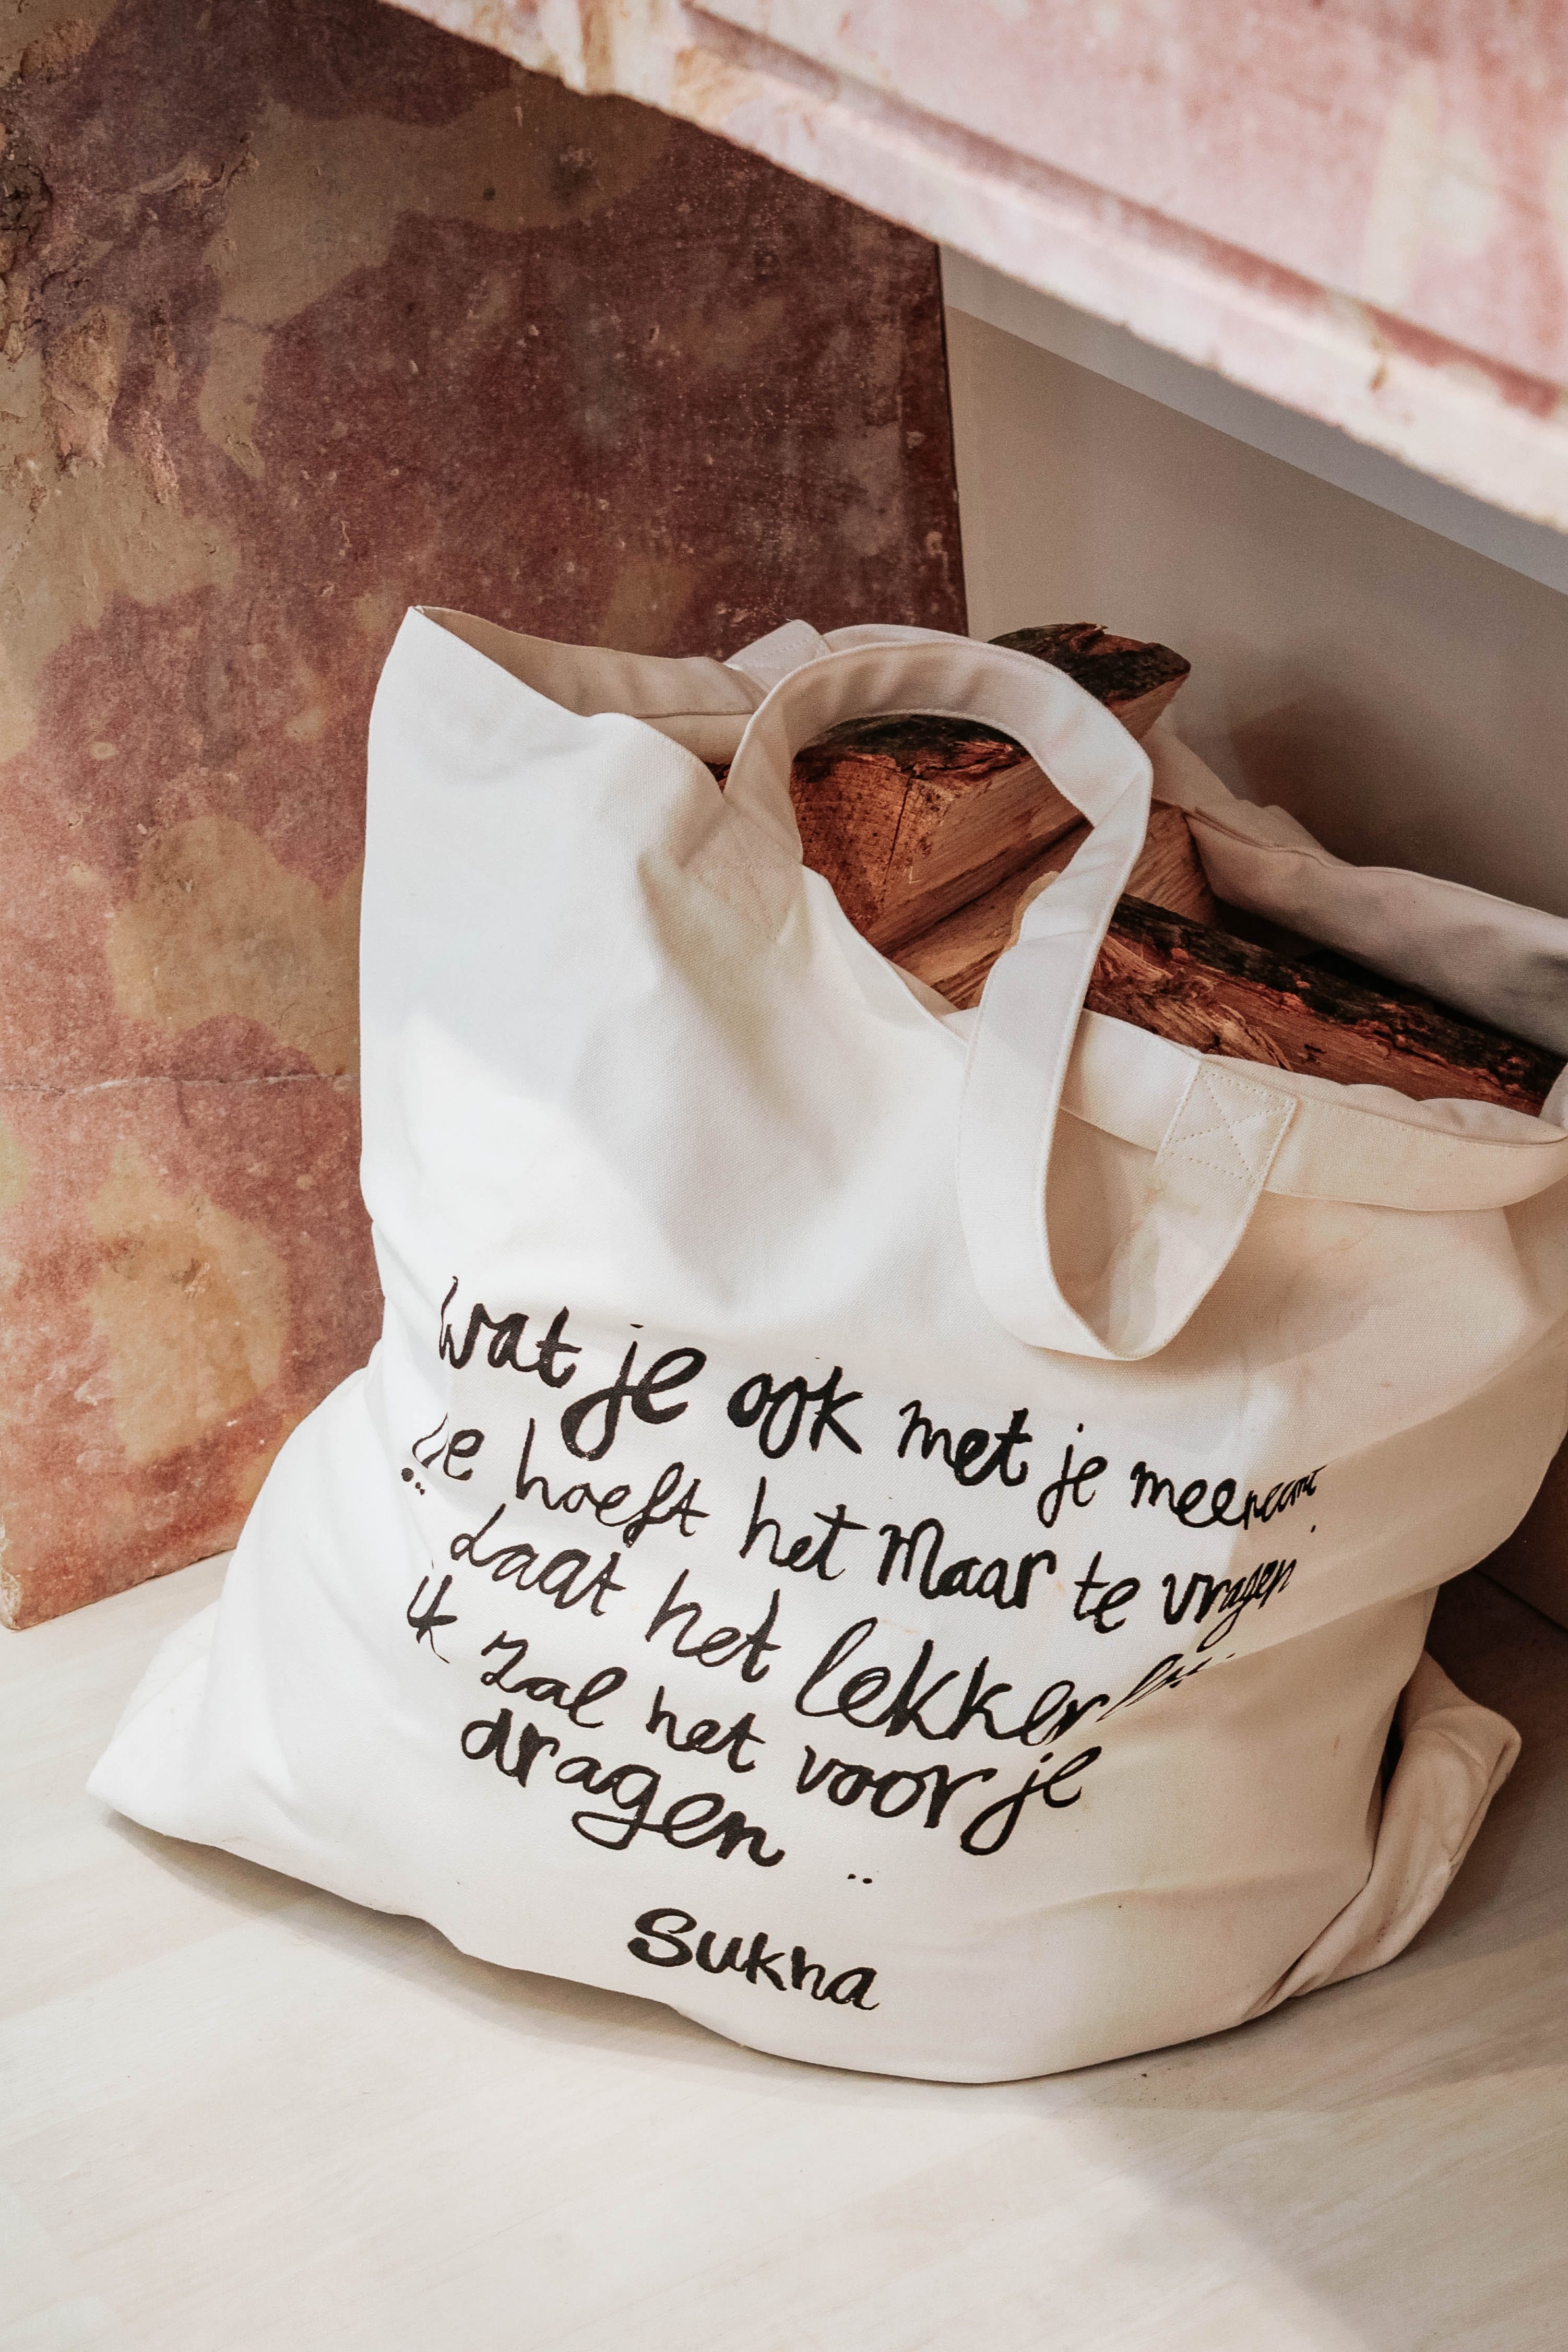 wat je ook met je meeneemt
je hoeft het Maar te vragen
Laat het lekker
ik zal het voor je
dragen ..
Sukha